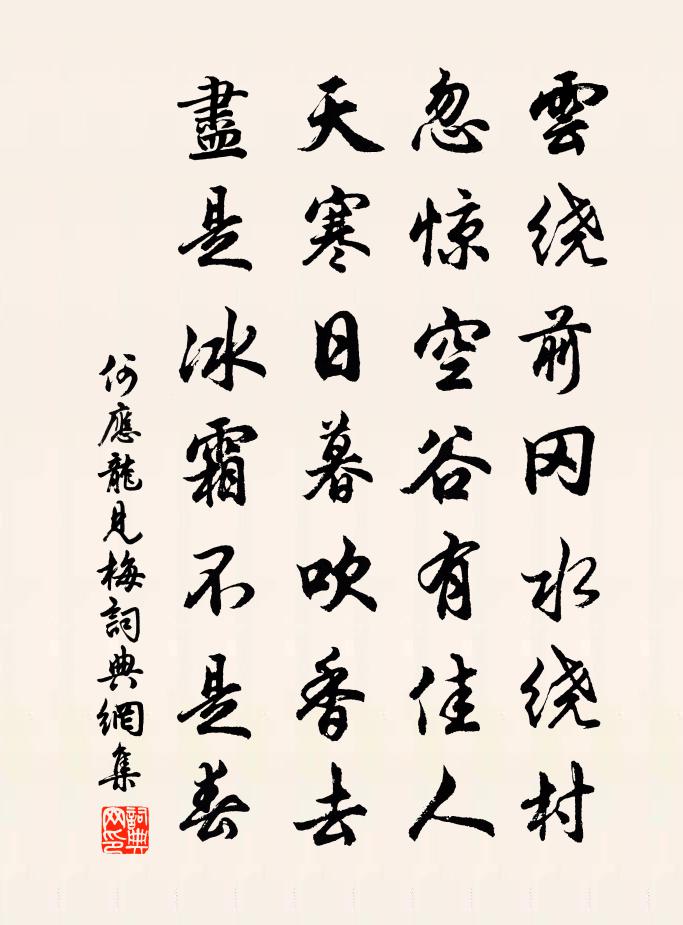 雲绕前冈水绕村
忽惊空谷有佳人
天寒日暮吹香去
盡是冰霜不是春
何應龍見梅詞典網集
詞典網印